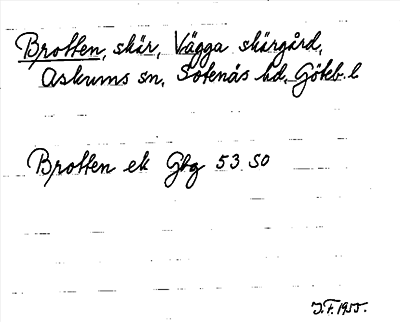 Brotten, skär, Vägga skärgård,
Askums sn, Sotenäs hd, Göteb. l
Brotten ek Gbg 53 SO
J.F. 1955.